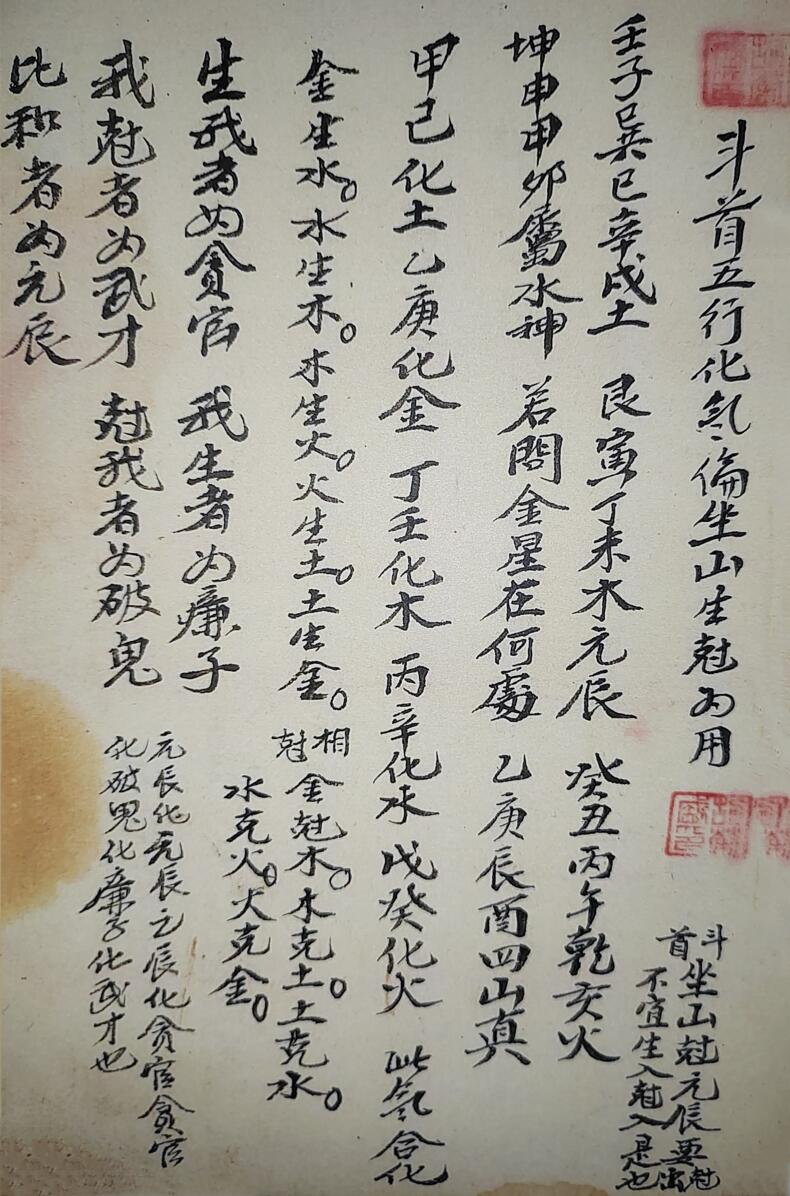 斗首五行化氣倫坐山生尅为用
斗首坐山尅元辰要尅出
不宜生入尅入是也
壬子巽巳辛戌土 艮寅丁未木元辰 癸丑丙午乾亥火
坤申甲卯屬水神 若問金星在何處 乙庚辰酉四山真
甲己化土乙庚化金 丁壬化木 丙辛化水 戊癸化火 此氣合化
金生水。水生木。木生火。火生土。土生金。 相尅 金尅木。木克土。土克水。
水克火。火克金。
生我者为貪官 我生者为廉子
我尅者为武才 尅我者为破鬼
比和者为元辰
元辰化元辰元辰化貪官貪官
化破鬼化廉子化武才也